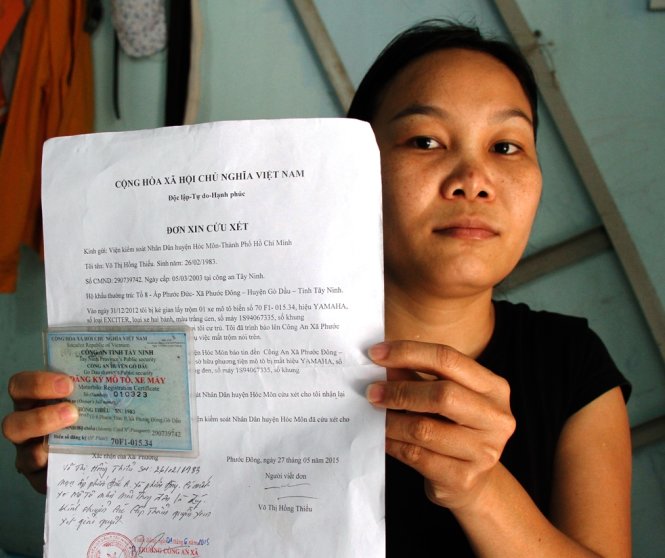 CỘNG HÒA XÃ HỘI CHỦ NGHĨA VIỆT NAM
Độc lập-Tự do-Hạnh phúc
ĐƠN XIN CỨU XÉT
Kính gửi: Viện kiểm soát Nhân Dân huyện Hóc Môn-Thành Phố Hồ Chí Minh
Tôi tên: Võ Thị Hồng Thiểu. Sinh năm: 26/02/1983.
Số CMND: 290739742. Ngày cấp: 05/03/2003 tại công an Tây Ninh.
Hộ khẩu thường trú: Tổ 8 - Ấp Phước Đức- Xã Phước Đông – Huyện Gò Dầu – Tỉnh Tây Ninh.
Vào ngày 31/12/2012 tôi bị kẻ gian lấy trộm 01 xe mô tô biển số 70 F1- 015.34, hiệu YAMAHA,
số loại EXCITER, loại xe hai bánh, màu trắng đen, số máy 1S94067335, số khung
tôi cư trú. Tôi đã trình báo lên Công An Xã Phước
việc mất trộm nói trên.
huyện Hóc Môn báo tin đến Công An Xã Phước Đông –
sở hữu phương tiện mô tô bị mất hiệu YAMAHA, số
đen, số máy 1S94067335, số khung
Nhân Dân huyện Hóc Môn cứu xét cho tôi nhận lại
kiểm soát Nhân Dân huyện Hóc Môn đã cứu xét cho
CỘNG HÒA XÃ HỘI CHỦ NGHĨA VIỆT NAM
Socialist Republic of Vietnam
CÔNG AN TỈNH TÂY NINH
Tay Ninh Province's Public security
CÔNG AN HUYỆN GÒ DẦU
Go Dau district's Public security
ĐĂNG KÝ MÔ TÔ, XE MÁY
Motorbike Registration Certificate
Số (Number): 010323
HỒNG THIỂU SN:1983
290739742
Biển số đăng ký
70F1-015.34
Xác nhận của Xã Phường
Phước Đông, ngày 27 tháng 05 năm 2015
Người viết đơn
Võ Thị Hồng Thiểu
Võ Thị Hồng Thiểu SN: 26/02/1983
6 2015
TRƯỞNG CÔNG AN XÃ